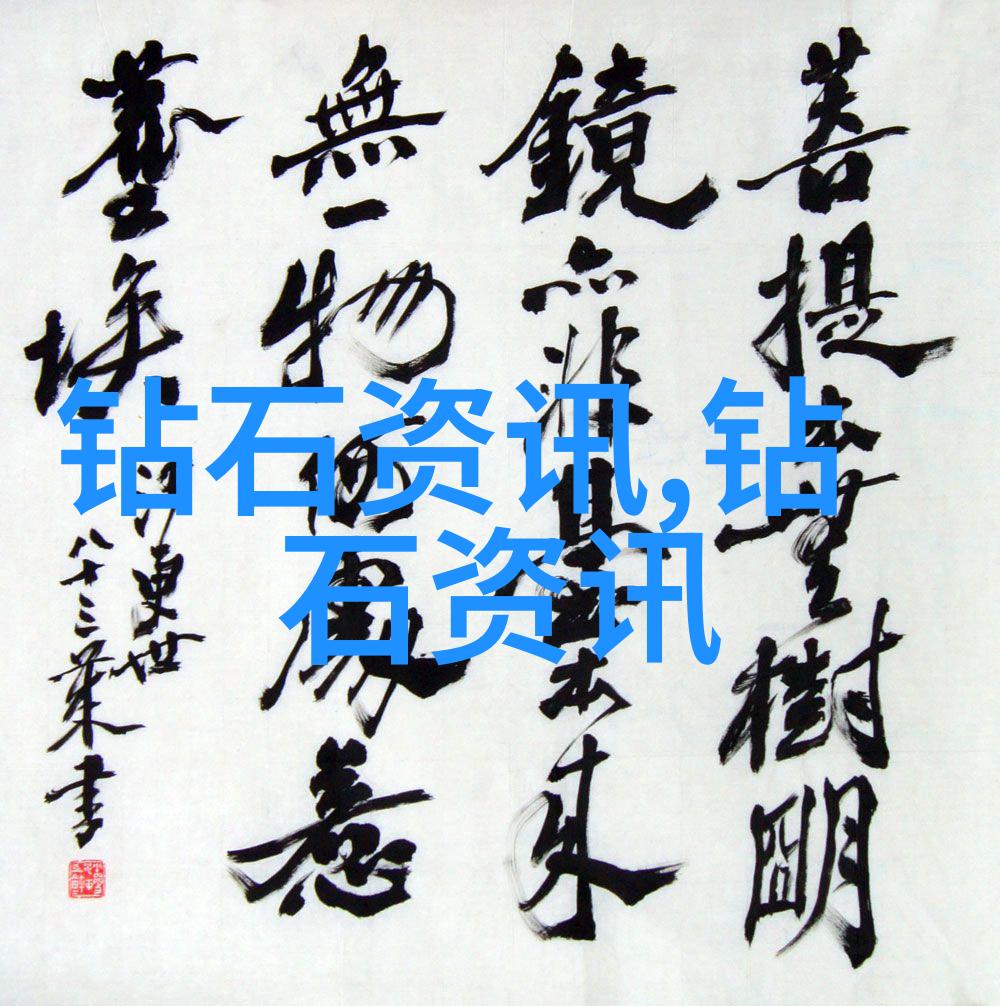 钻石资讯,钻
石资讯
菩提本無樹明
鏡亦非臺本来
無一物何處惹
塵埃
更世
八十三 書